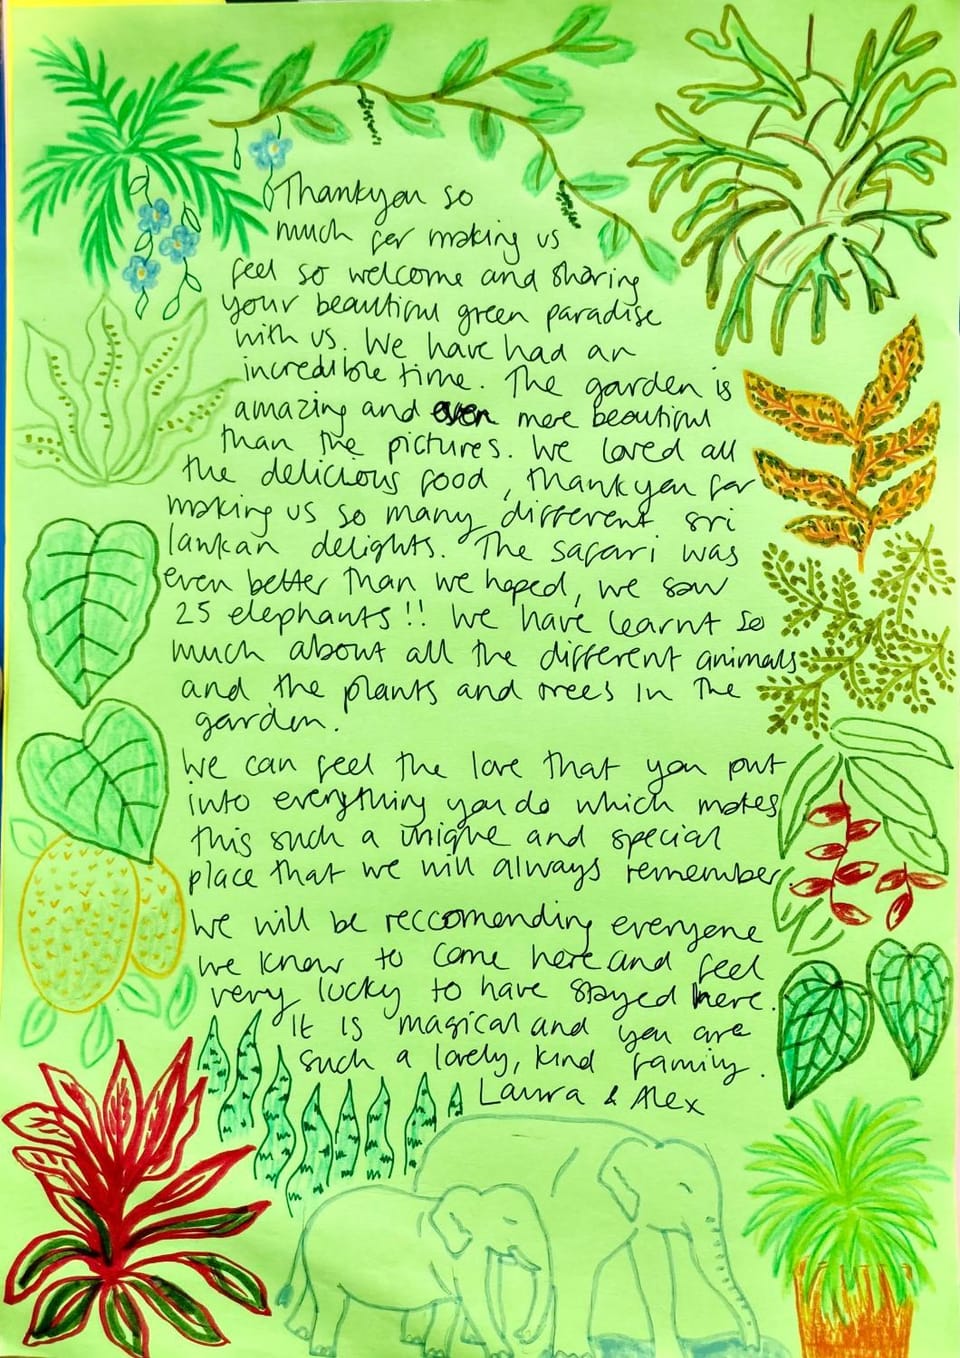 Thankyou so
much for making us
feel so welcome and sharing
your beautiful green paradise
with us. We have had an
incredible time. The garden is
amazing and even more beautiful
than the pictures. We loved all
the delicious food, thankyou for
making us so many different sri
lankan delights. The safari was
even better than we hoped, we saw
25 elephants!! We have learnt so
much about all the different animals
and the plants and trees in the
garden.
We can feel the love that you put
into everything you do which makes
this such a unique and special
place that we will always remember.
We will be reccomending everyone
we know to come here and feel
very lucky to have stayed here.
It is magical and you are
such a lovely, kind family.
Laura & Alex